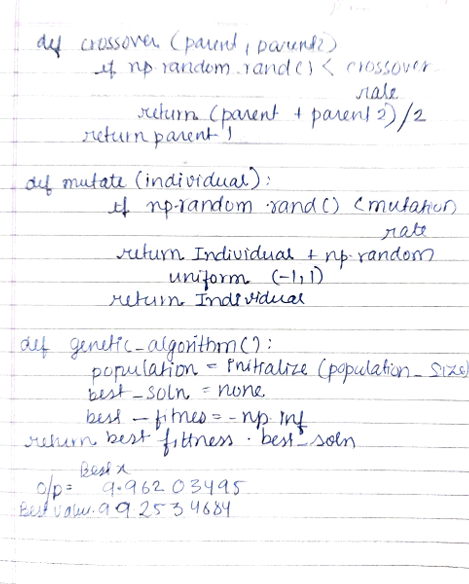 def crossover (parent, parent2)
if np.random.rand() < crossover
rate
return (parent + parent 2)/2
return parent 1
def mutate (individual):
if np.random.rand() < mutation
rate
return Individual + np.random
uniform (-1,1)
return Individual
def genetic_algorithm():
population = initialize (population_size)
best_soln = none
best - fitnes = - np.inf
return best fittness . best_soln
Best x
o/p = 9.96203495
Best value. 99.2534684